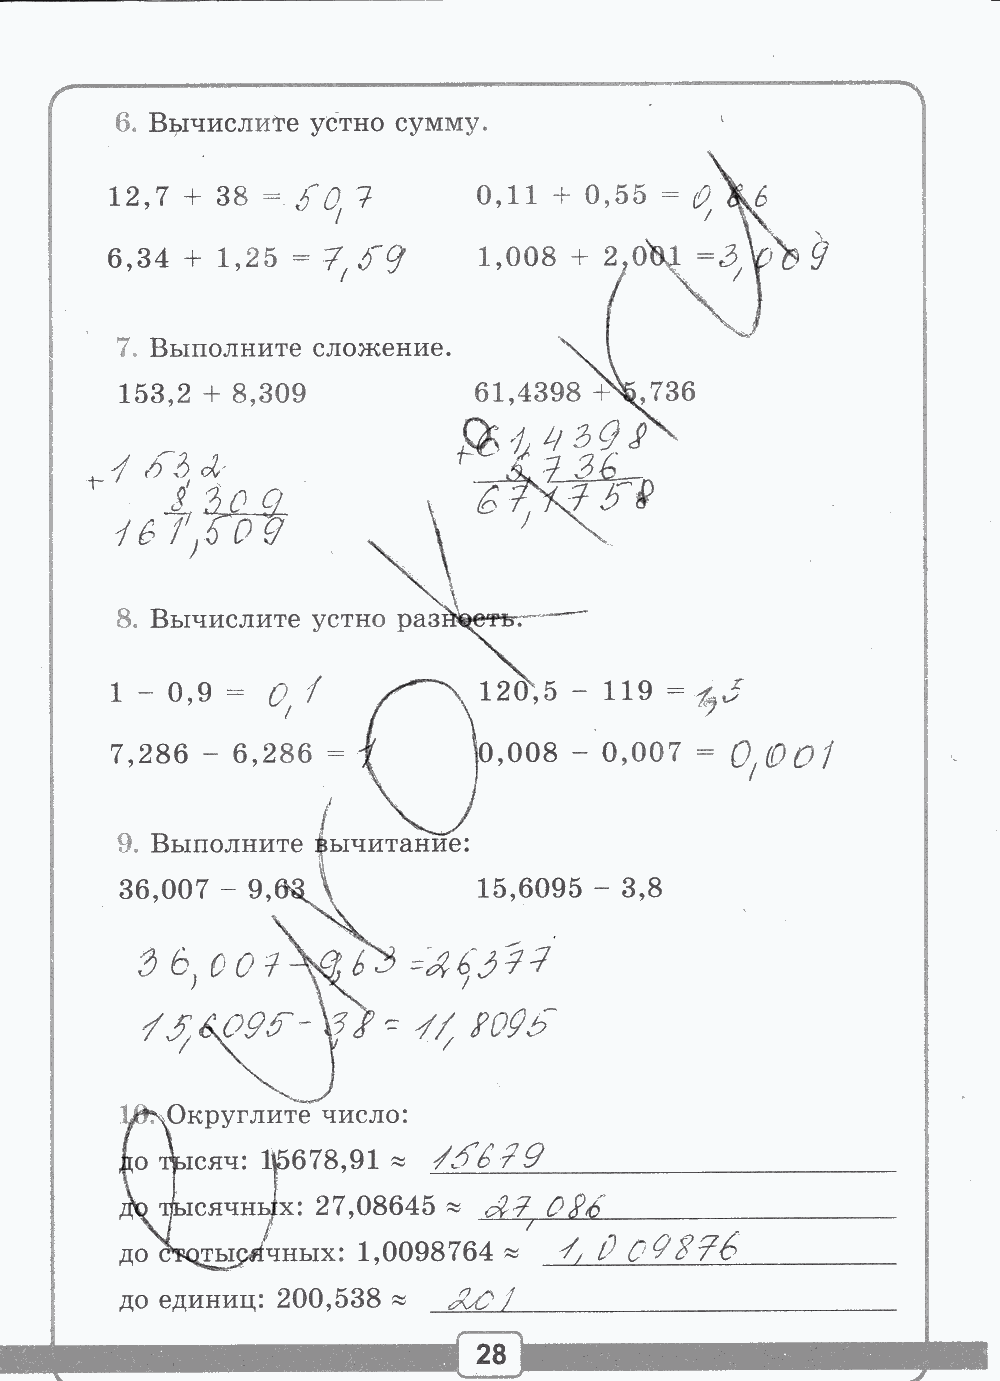 6. Вычислите устно сумму.
12,7 + 38 = 50,7 0,11 + 0,55 = 0,66
6,34 + 1,25 = 7,59 1,008 + 2,001 = 3,009
7. Выполните сложение.
153,2 + 8,309 61,4398 + 5,736
+ 153,2
8,309
161,509
+ 61,4398
5,736
67,1758
8. Вычислите устно разность.
1 – 0,9 = 0,1 120,5 – 119 = 1,5
7,286 – 6,286 = 1 0,008 – 0,007 = 0,001
9. Выполните вычитание:
36,007 – 9,63 15,6095 – 3,8
36,007 – 9,63 = 26,377
15,6095 – 3,8 = 11,8095
10. Округлите число:
до тысяч: 15678,91 ≈ 15679
до тысячных: 27,08645 ≈ 27,086
до стотысячных: 1,0098764 ≈ 1,009876
до единиц: 200,538 ≈ 201
28